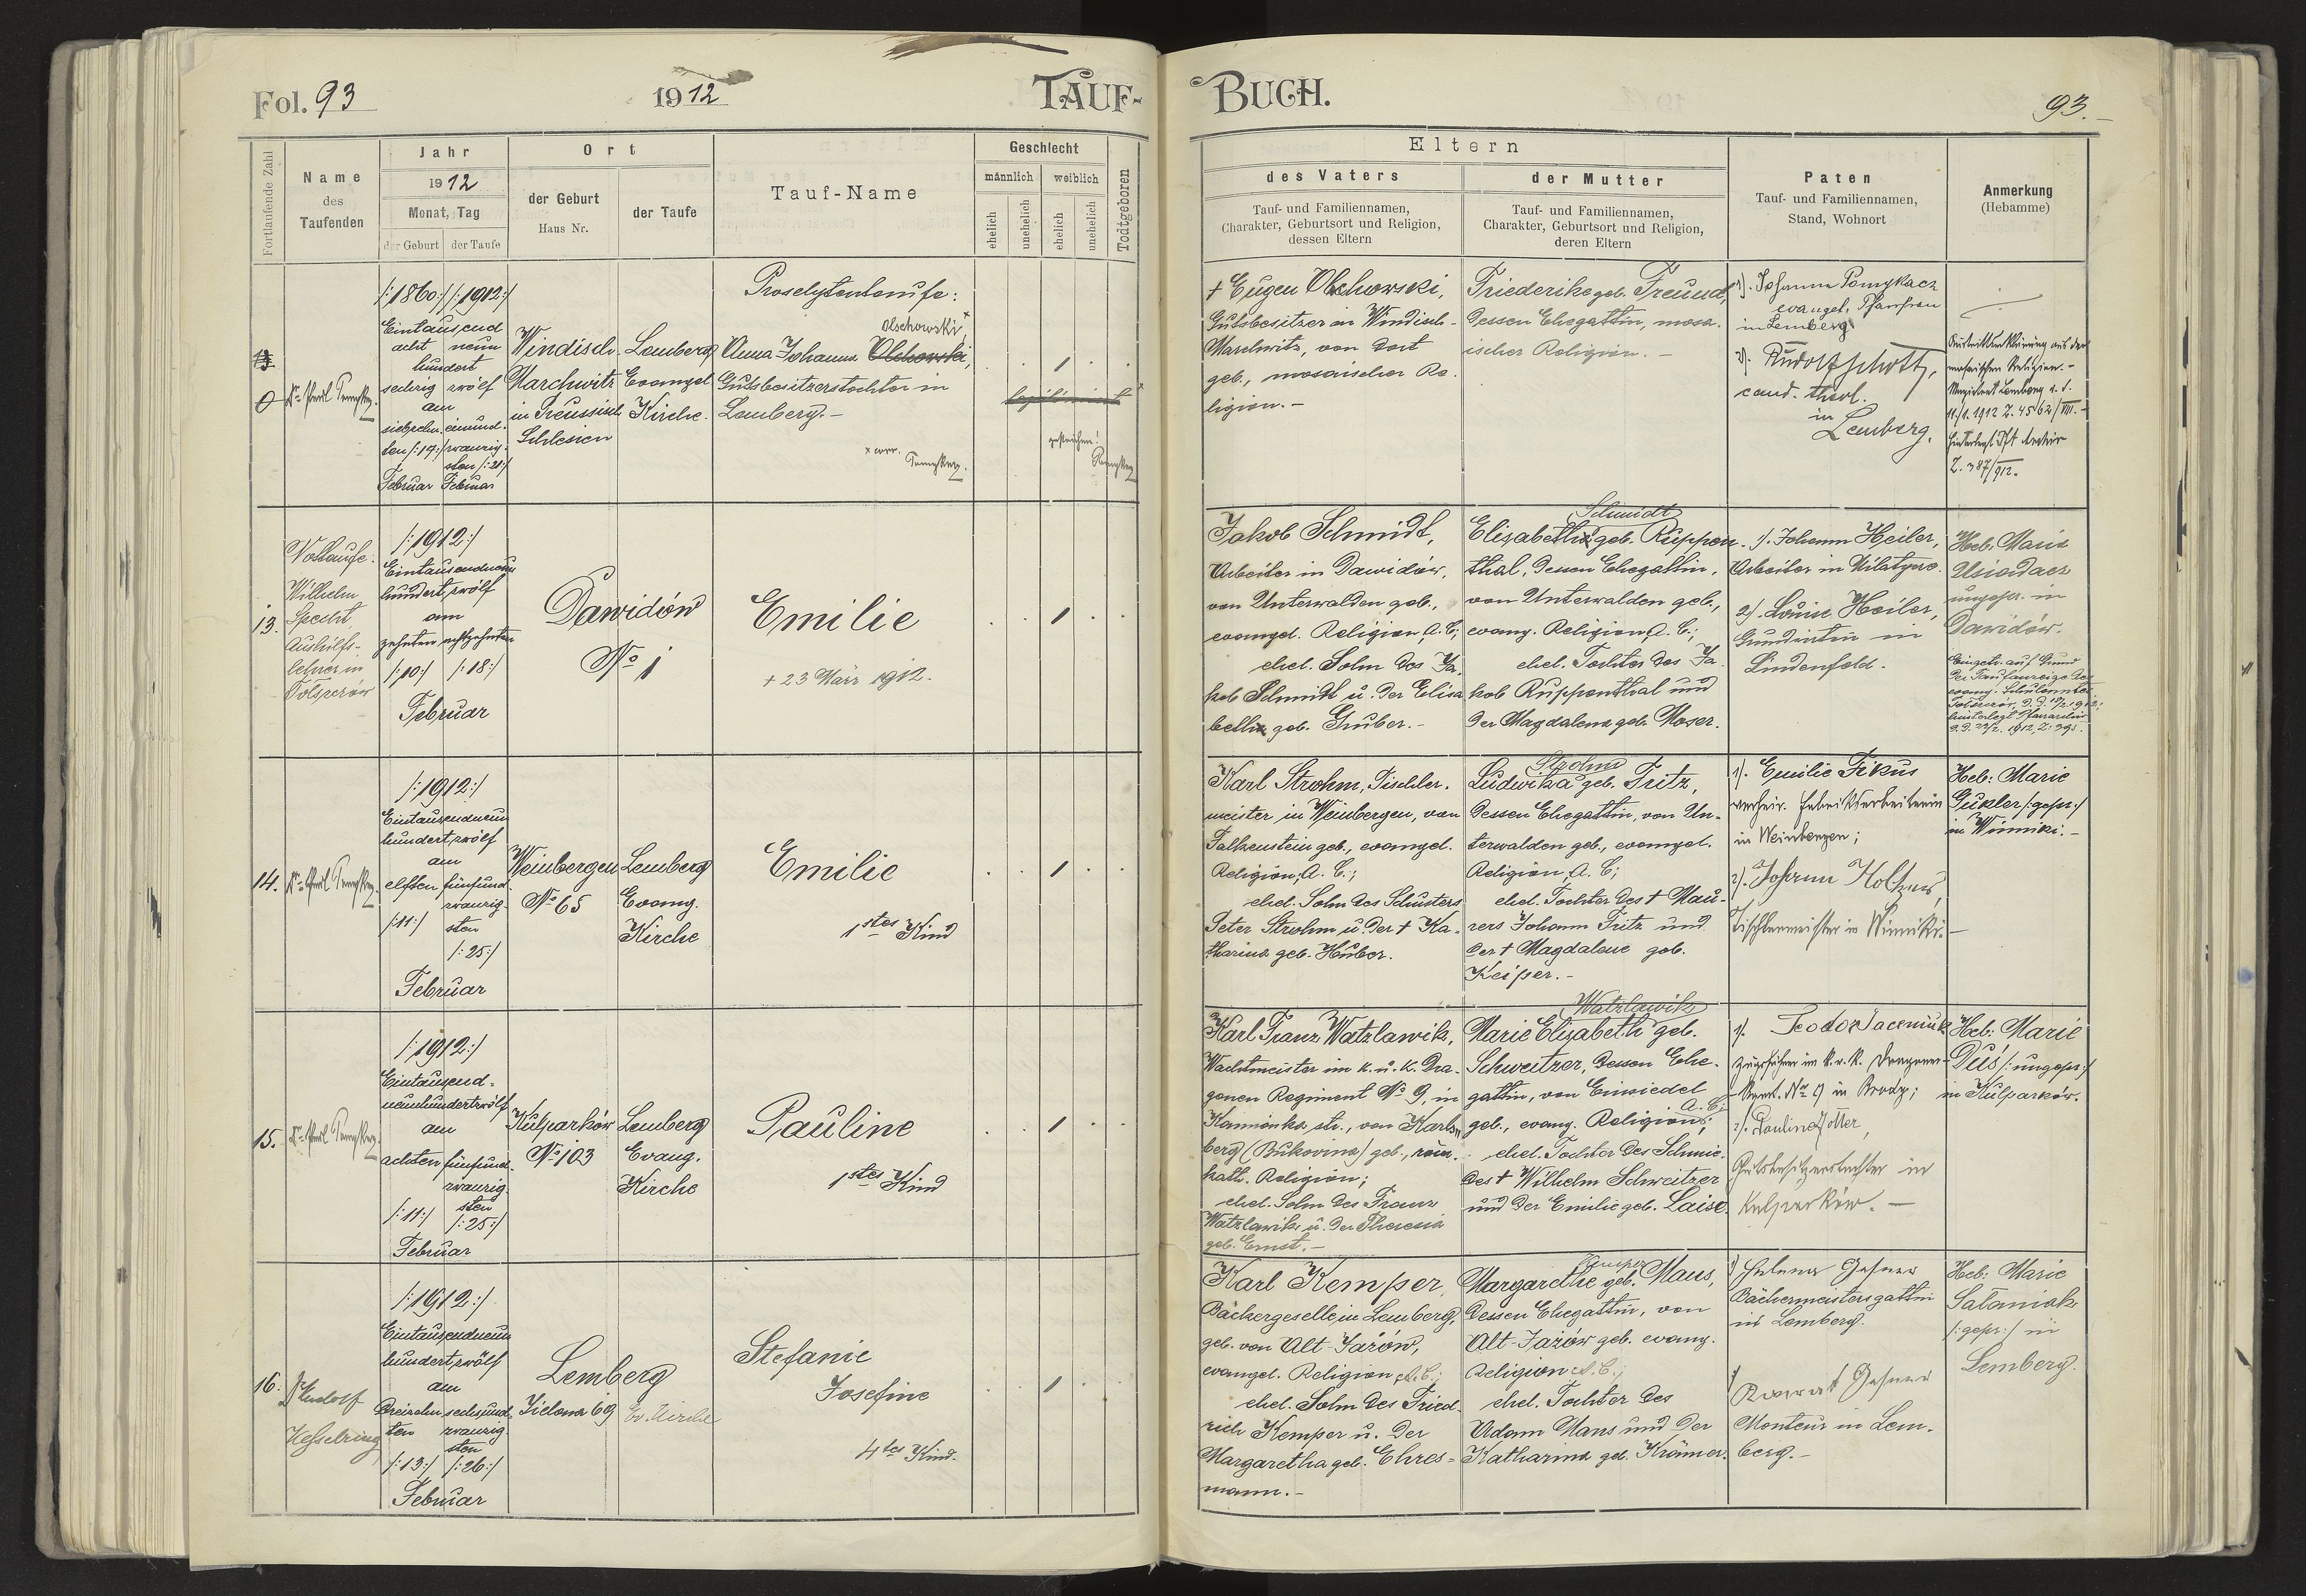 Fol. 93
1912
TAUF-
BUCH.
93.
Fortlaufende Zahl
Name
des
Taufenden
Jahr
1912
Monat, Tag
der Geburt
der Taufe
Ort
der Geburt
Haus Nr.
der Taufe
Tauf-Name
Geschlecht
männlich
weiblich
ehelich
unehelich
ehelich
unehelich
Todtgeboren
Eltern
des Vaters
Tauf- und Familiennamen,
Charakter, Geburtsort und Religion,
dessen Eltern
der Mutter
Tauf- und Familiennamen,
Charakter, Geburtsort und Religion,
deren Eltern
Paten
Tauf- und Familiennamen,
Stand, Wohnort
Anmerkung
(Hebamme)
/:1860:/ /:1912:/
Eintausend
acht neun
hundert
sechzig zwölf
am
siebzehn- einund-
ten /:17:/ zwanzig-
sten /:21:/
Februar Februar
Windisch-
Marchwitz
in Preussisch
Schlesien
Lemberg
Evangel.
Kirche.
Proselytentaufe:
Olschowski,
Anna Johanna Olchowski,
Gutsbesitzerstochter in
Lemberg.-
1
legitimiert
gestrichen!
x corr.
† Eugen Olschowski,
Gutsbesitzer in Windisch-
Marchwitz, von dort
geb., mosaischer Re-
ligion.-
Friederike geb. Freund,
dessen Ehegattin, mosa-
ischer Religion.-
1). Johanna Pomykacz
evangel. Pfarrfrau
in Lemberg
2). Rudolf Schott,
cand. theol.
in
Lemberg.
Austrittserklärung aus der
mosaischen Religion.-
Magistrat Lemberg d. d.
11/1. 1912 Z. 4562/VIII.-
Z. 387/912.
13.
Nottaufe:
Wilhelm
Specht,
Aushilfs-
lehrer in
Tolszczów
/:1912:/
Eintausendneun
hundertzwölf
am
zehnten achtzehnten
/:10:/ /:18:/
Februar
Dawidów
No 1
Emilie
+ 23 März 1912.
1
Jakob Schmidt,
Arbeiter in Dawidów,
von Unterwalden geb.,
evangel. Religion, A. C;
ehel. Sohn des Ja-
kob Schmidt u. der Elisa
beth geb. Gruber.-
Schmidt
Elisabeth geb. Ruppen-
thal, dessen Ehegattin,
von Unterwalden geb.,
evang. Religion A. C.;
ehel. Tochter des Ja-
kob Ruppenthal und
der Magdalena geb. Moser.
1). Johann Heiler,
Arbeiter in
2). Louise Heiler,
Grundwirtin in
Lindenfeld.
Heb: Marie
ungepr. in
Dawidów.
Eingetr. auf Grund
der Taufanzeige des
evang. Schulamtes
Tolszczów, d. d. 19/2. 1912;
hinterlegt Pfarrarchiv
d. d. 22/2. 1912, Z. 395.
14.
/:1912:/
Eintausendneun
hundertzwölf
am
elften fünfund-
zwanzig-
/:11:/ sten
/:25:/
Februar
Weinbergen
No 65
Lemberg
Evang.
Kirche
Emilie
1stes Kind
1
Karl Strohm, Tischler-
meister in Weinbergen, von
Falkenstein geb., evangel.
Religion; A. C.;
ehel. Sohn des Schusters
Peter Strohm u. der † Ka-
tharina geb. Huber.
Strohm
Ludwika geb. Fritz,
dessen Ehegattin, von Un-
terwalden geb., evangel.
Religion, A. C;
ehel. Tochter des † Mau-
rers Johann Fritz und
der † Magdalene geb.
Keiper.-
1). Emilie Fikus
verheir. Fabriksarbeiterin
in Weinbergen;
2). Johann
Tischlermeister in Winniki.-
Heb: Marie
Gukler /:gepr:/
in Winniki.-
15.
/:1912:/
Eintausend-
neunhundertzwölf
am
achten fünfund-
zwanzig-
sten
/:11:/ /:25:/
Februar
Kulparków
No 103
Lemberg
Evang.
Kirche
Pauline
1stes Kind
1
Karl Franz Watzlawik,
Wachtmeister im k. u. k. Dra-
gonen Regiment No 9, in
Kamionka str., von Karls-
berg (Bukovina) geb., röm.-
kath. Religion;
ehel. Sohn des Franz
Watzlawik u. der Theresia
geb. Ernst.-
Watzlawik
Marie Elisabeth geb.
Schweitzer, dessen Ehe-
gattin, von Einsiedel
geb., evang. Religion A. C;
ehel. Tochter des Schmie-
des † Wilhelm Schweitzer
und der Emilie geb. Laise.
1).
Zugsführer im k. u. k. Dragoner-
Regmt. No 9 in Brody;
2).
Gutsbesitzerstochter in
Kulparków.-
Heb: Marie
Dus /:ungepr:/
in Kulparków.
16.
Rudolf
Kesselring
/:1912:/
Eintausendneun
hundertzwölf
am
dreizehn- sechsund-
ten zwanzig-
sten
/:13:/ /:26:/
Februar
Lemberg
Zielona 69
Ev. Kirche
Stefanie
Josefine
4tes Kind.
1
Karl Kemper,
Bäckergeselle in Lemberg,
geb. von Alt-Jażów,
evangel. Religion A. C.;
ehel. Sohn des Fried-
rich Kemper u. der
Margaretha geb. Ehres-
mann.-
Kemper
Margarethe geb. Maus,
dessen Ehegattin, von
Alt-Jażów geb. evang.
Religion A. C.;
ehel. Tochter des
Adam Maus und der
Katharina geb. Krämer.
1) Helena
Bäckermeistersgattin
in Lemberg.
2)
Monteur in Lem-
berg.-
Heb: Marie
Sataniak
/:gepr:/ in
Lemberg.